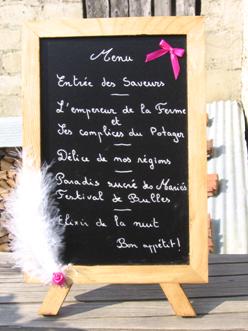 Menu
Entrée des Saveurs
L'empereur de la Ferme
et
Ses complices du Potager
Délice de nos régions
Paradis sucré des Mariés
Festival de Bulles
Elixir de la nuit
Bon appétit!